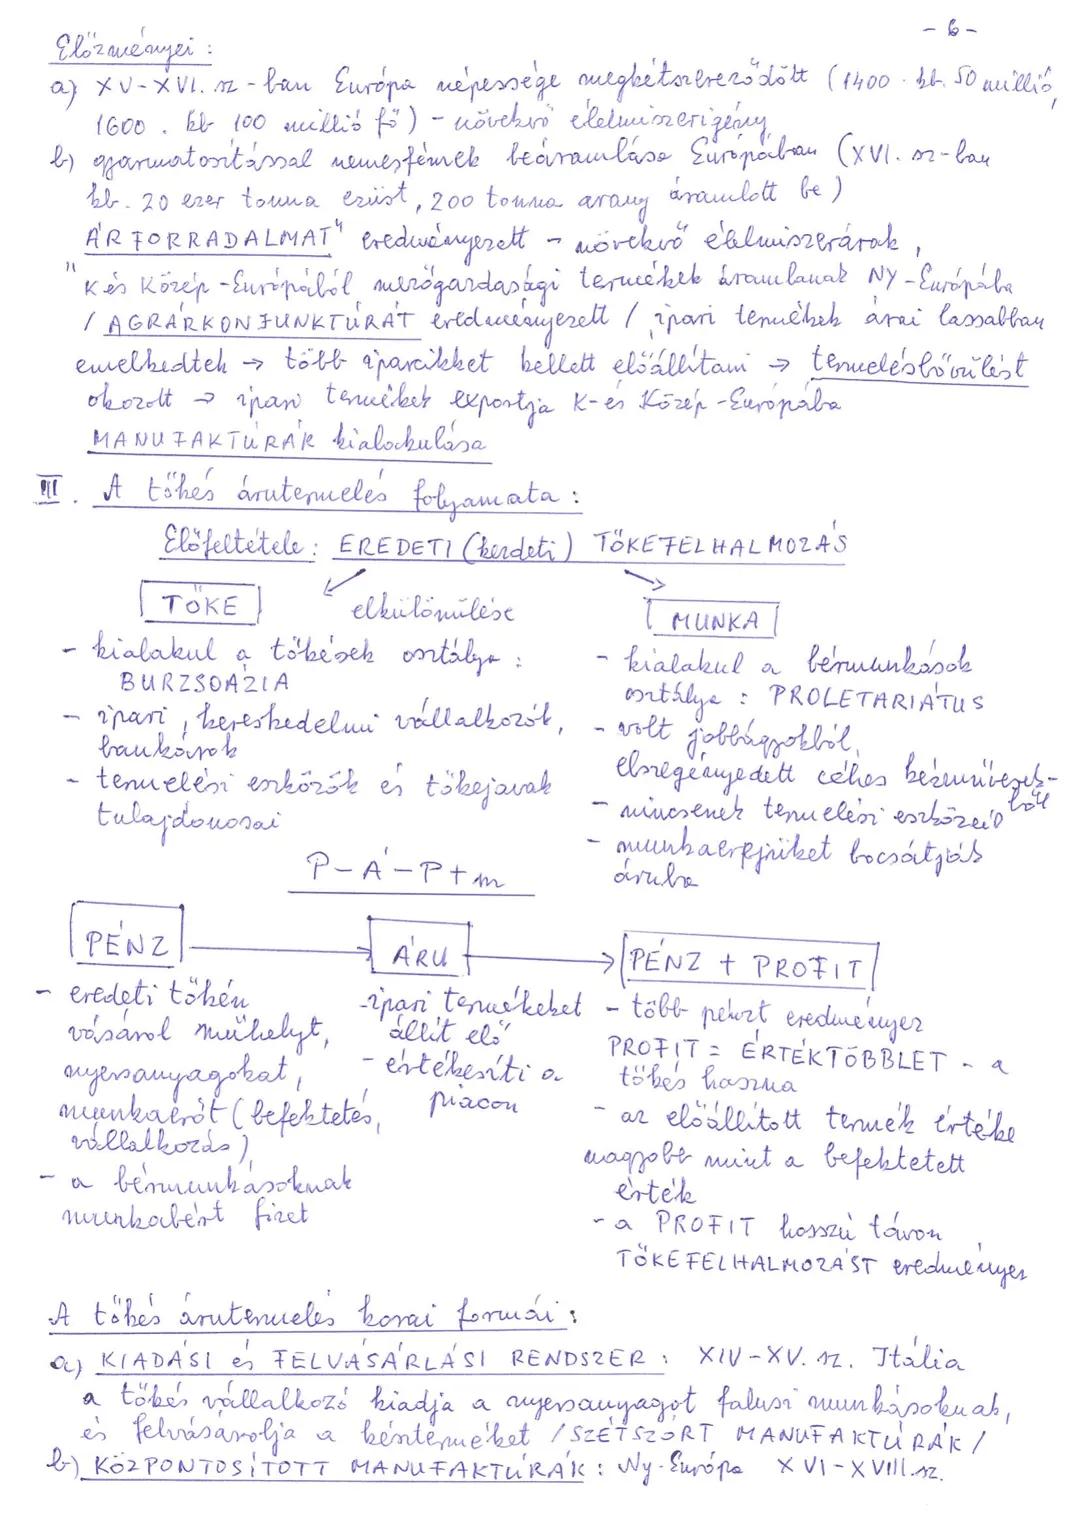 - 6 -
Előzményei :
a) XV-XVI. sz-ban Európa népessége megkétszereződött (1400 . kb. 50 millió,
1600 . kb 100 millió fő) - növekvő élelmiszerigény
b) gyarmatosítással nemesfémek beáramlása Európában (XVI. sz-ban
kb. 20 ezer tonna ezüst, 200 tonna arany áramlott be)
„ÁRFORRADALMAT" eredményezett - növekvő élelmiszerárak,
K és Közép-Európából mezőgazdasági termékek áramlanak NY-Európába
/ AGRÁRKONJUNKTÚRÁT eredményezett / ipari termékek árai lassabban
emelkedtek → több iparcikket kellett előállítani → termelésbővülést
okozott → ipari termékek exportja K-és Közép-Európába
MANUFAKTÚRÁK kialakulása
III. A tőkés árutermelés folyamata :
Előfeltétele : EREDETI (kezdeti) TŐKEFELHALMOZÁS
TŐKE elkülönülése MUNKA
- kialakul a tőkések osztálya :
BURZSOÁZIA
- ipari, kereskedelmi vállalkozók,
bankárok
- termelési eszközök és tőkejavak
tulajdonosai
- kialakul a bérmunkások
osztálya : PROLETARIÁTUS
- volt jobbágyokból,
elszegényedett céhes kézművesek-
ből
- nincsenek termelési eszközeik
- munkaerejüket bocsátják
áruba
P-Á-P+m
PÉNZ → ÁRU → PÉNZ + PROFIT
- eredeti tőkén
vásárol műhelyt,
nyersanyagokat,
munkaerőt (befektetés,
vállalkozás)
- a bérmunkásoknak
munkabért fizet
- ipari termékeket
állít elő
- értékesíti a
piacon
- több pénzt eredményez
PROFIT = ÉRTÉKTÖBBLET - a
tőkés haszna
- az előállított termék értéke
nagyobb mint a befektetett
érték
- a PROFIT hosszú távon
TŐKEFELHALMOZÁST eredményez
A tőkés árutermelés korai formái :
a) KIADÁSI és FELVÁSÁRLÁSI RENDSZER : XIV-XV. sz. Itália
a tőkés vállalkozó kiadja a nyersanyagot falusi munkásoknak,
és felvásárolja a készterméket / SZÉTSZÓRT MANUFAKTÚRÁK /
b) KÖZPONTOSÍTOTT MANUFAKTÚRÁK : Ny-Európa XVI-XVIII. sz.